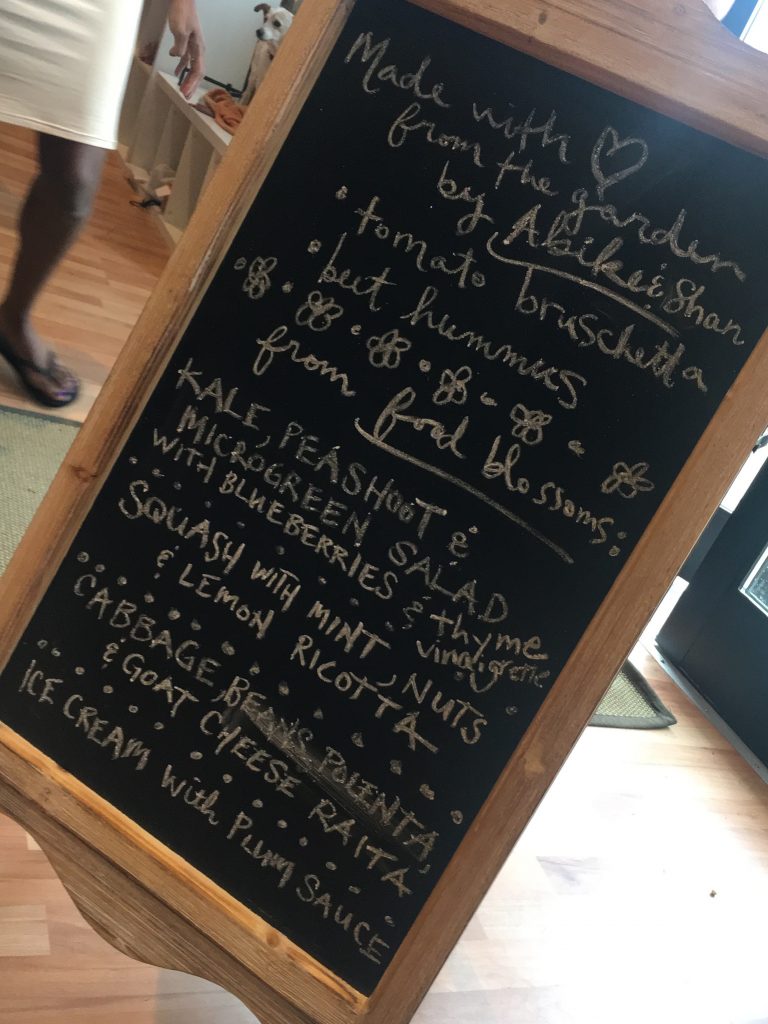 Made with ♡
from the garden
by Abike & Shan
• tomato bruschetta
• beet hummus
from food blossoms:
KALE, PEASHOOT &
MICROGREEN SALAD
WITH BLUEBERRIES & thyme
vinaigrette
SQUASH WITH MINT, NUTS
& LEMON RICOTTA
CABBAGE, BEANS, POLENTA,
& GOAT CHEESE RAITA
ICE CREAM with PLUM SAUCE